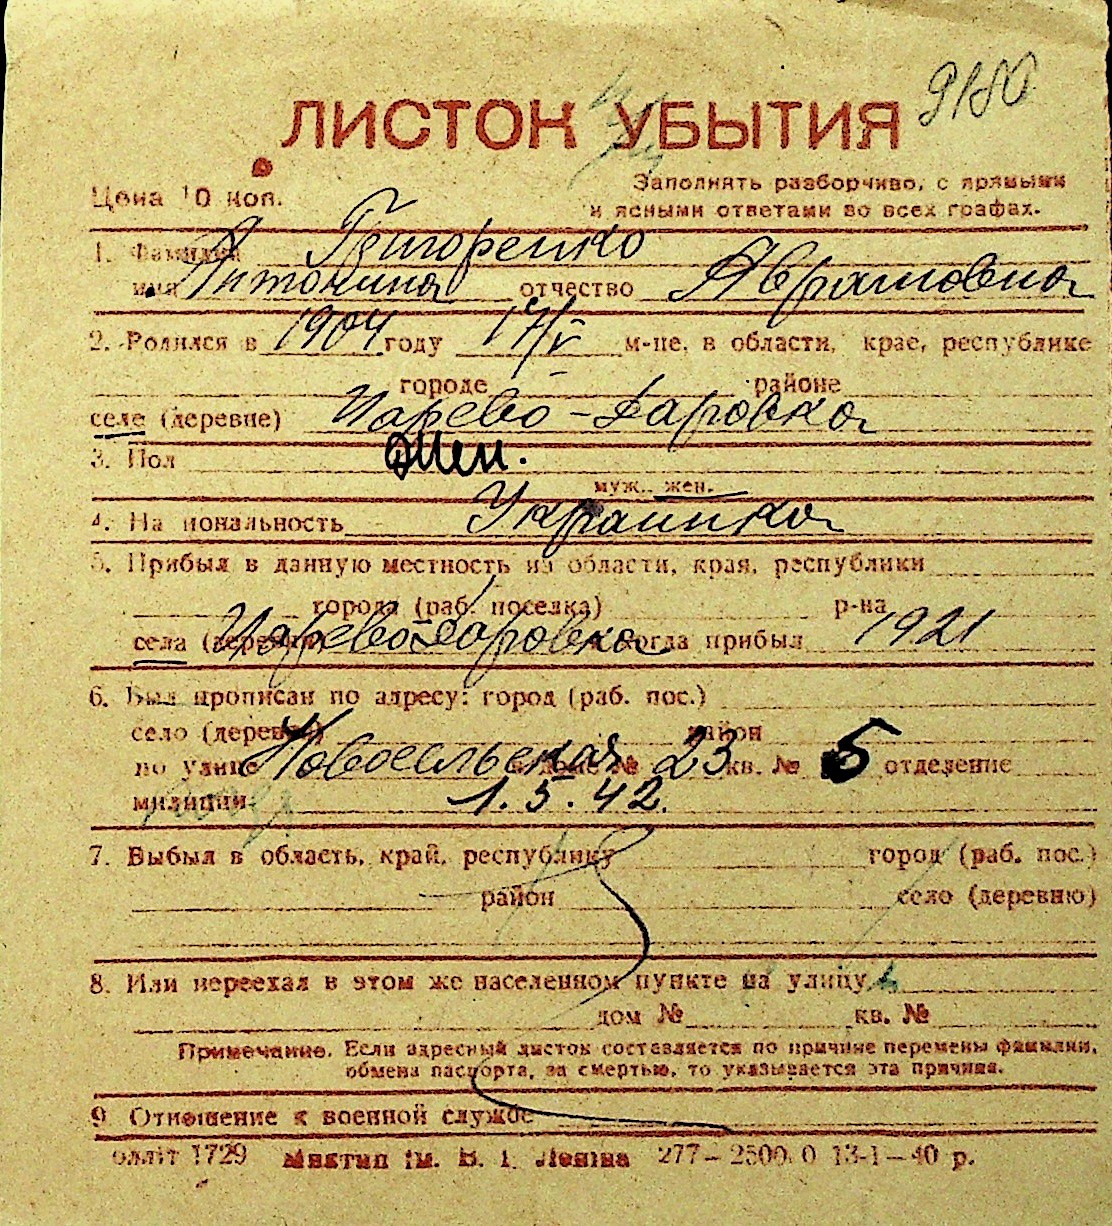 9180
ЛИСТОК УБЫТИЯ
Цена 10 коп.
Заполнять разборчиво, с прямыми
и ясными ответами во всех графах.
1. Фамилия Григоренко
имя Антонина отчество Аврамовна
2. Родился в 1904 году 17/V м-це, в области, крае, республике
городе районе
селе (деревне) Царево-Даровка
3. Пол Жен.
муж., жен.
4. Национальность Украинка
5. Прибыл в данную местность из области, края, республики
города (раб. поселка) р-на
села (деревни) Царево Даровка когда прибыл 1921
6. Был прописан по адресу: город (раб. пос.)
село (деревня) район
по улице Новосельская в доме № 23 кв. № 5 отделение
милиции 1.5.42.
7. Выбыл в область, край, республику город (раб. пос.)
район село (деревню)
8. Или переехал в этом же населенном пункте на улицу
дом № кв. №
Примечание. Если адресный листок составляется по причине перемены фамилии,
обмена паспорта, за смертью, то указывается эта причина.
9 Отношение к военной службе
оллiт 1729 ім. В. І. Леніна 277—2500.0 13-1—40 р.